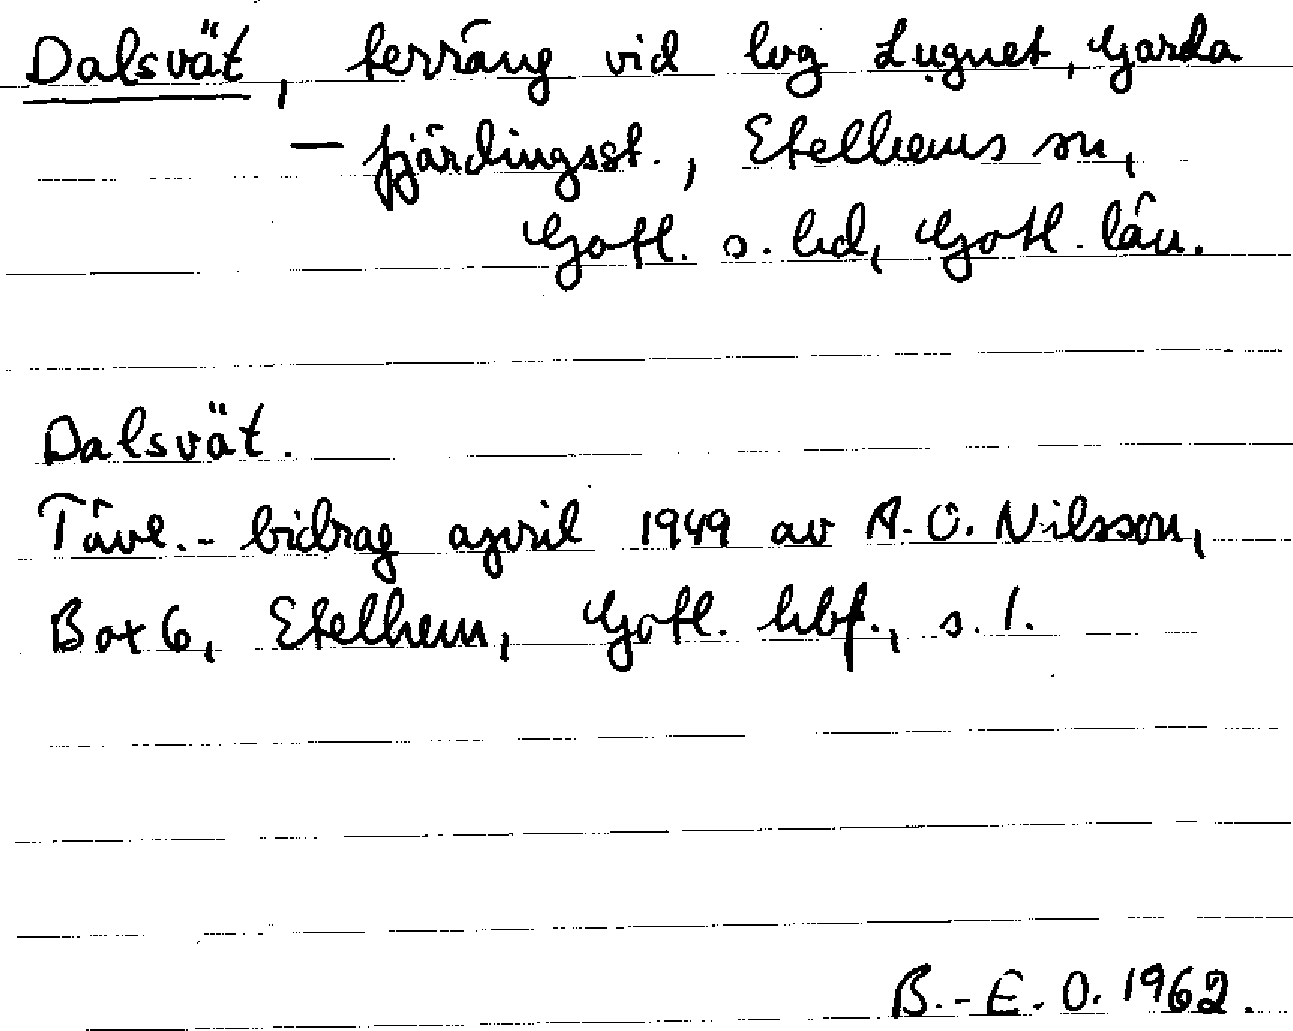 Dalsvät, terräng vid lvg Lugnet, Garda
— fjärdingsst., Etelhems sn,
Gotl. s. hd, Gotl. län.
Dalsvät.
Tävl.- bidrag april 1949 av A.O. Nilsson,
Box 6, Etelhem, Gotl. hbf., s. 1.
B.-E. O. 1962.